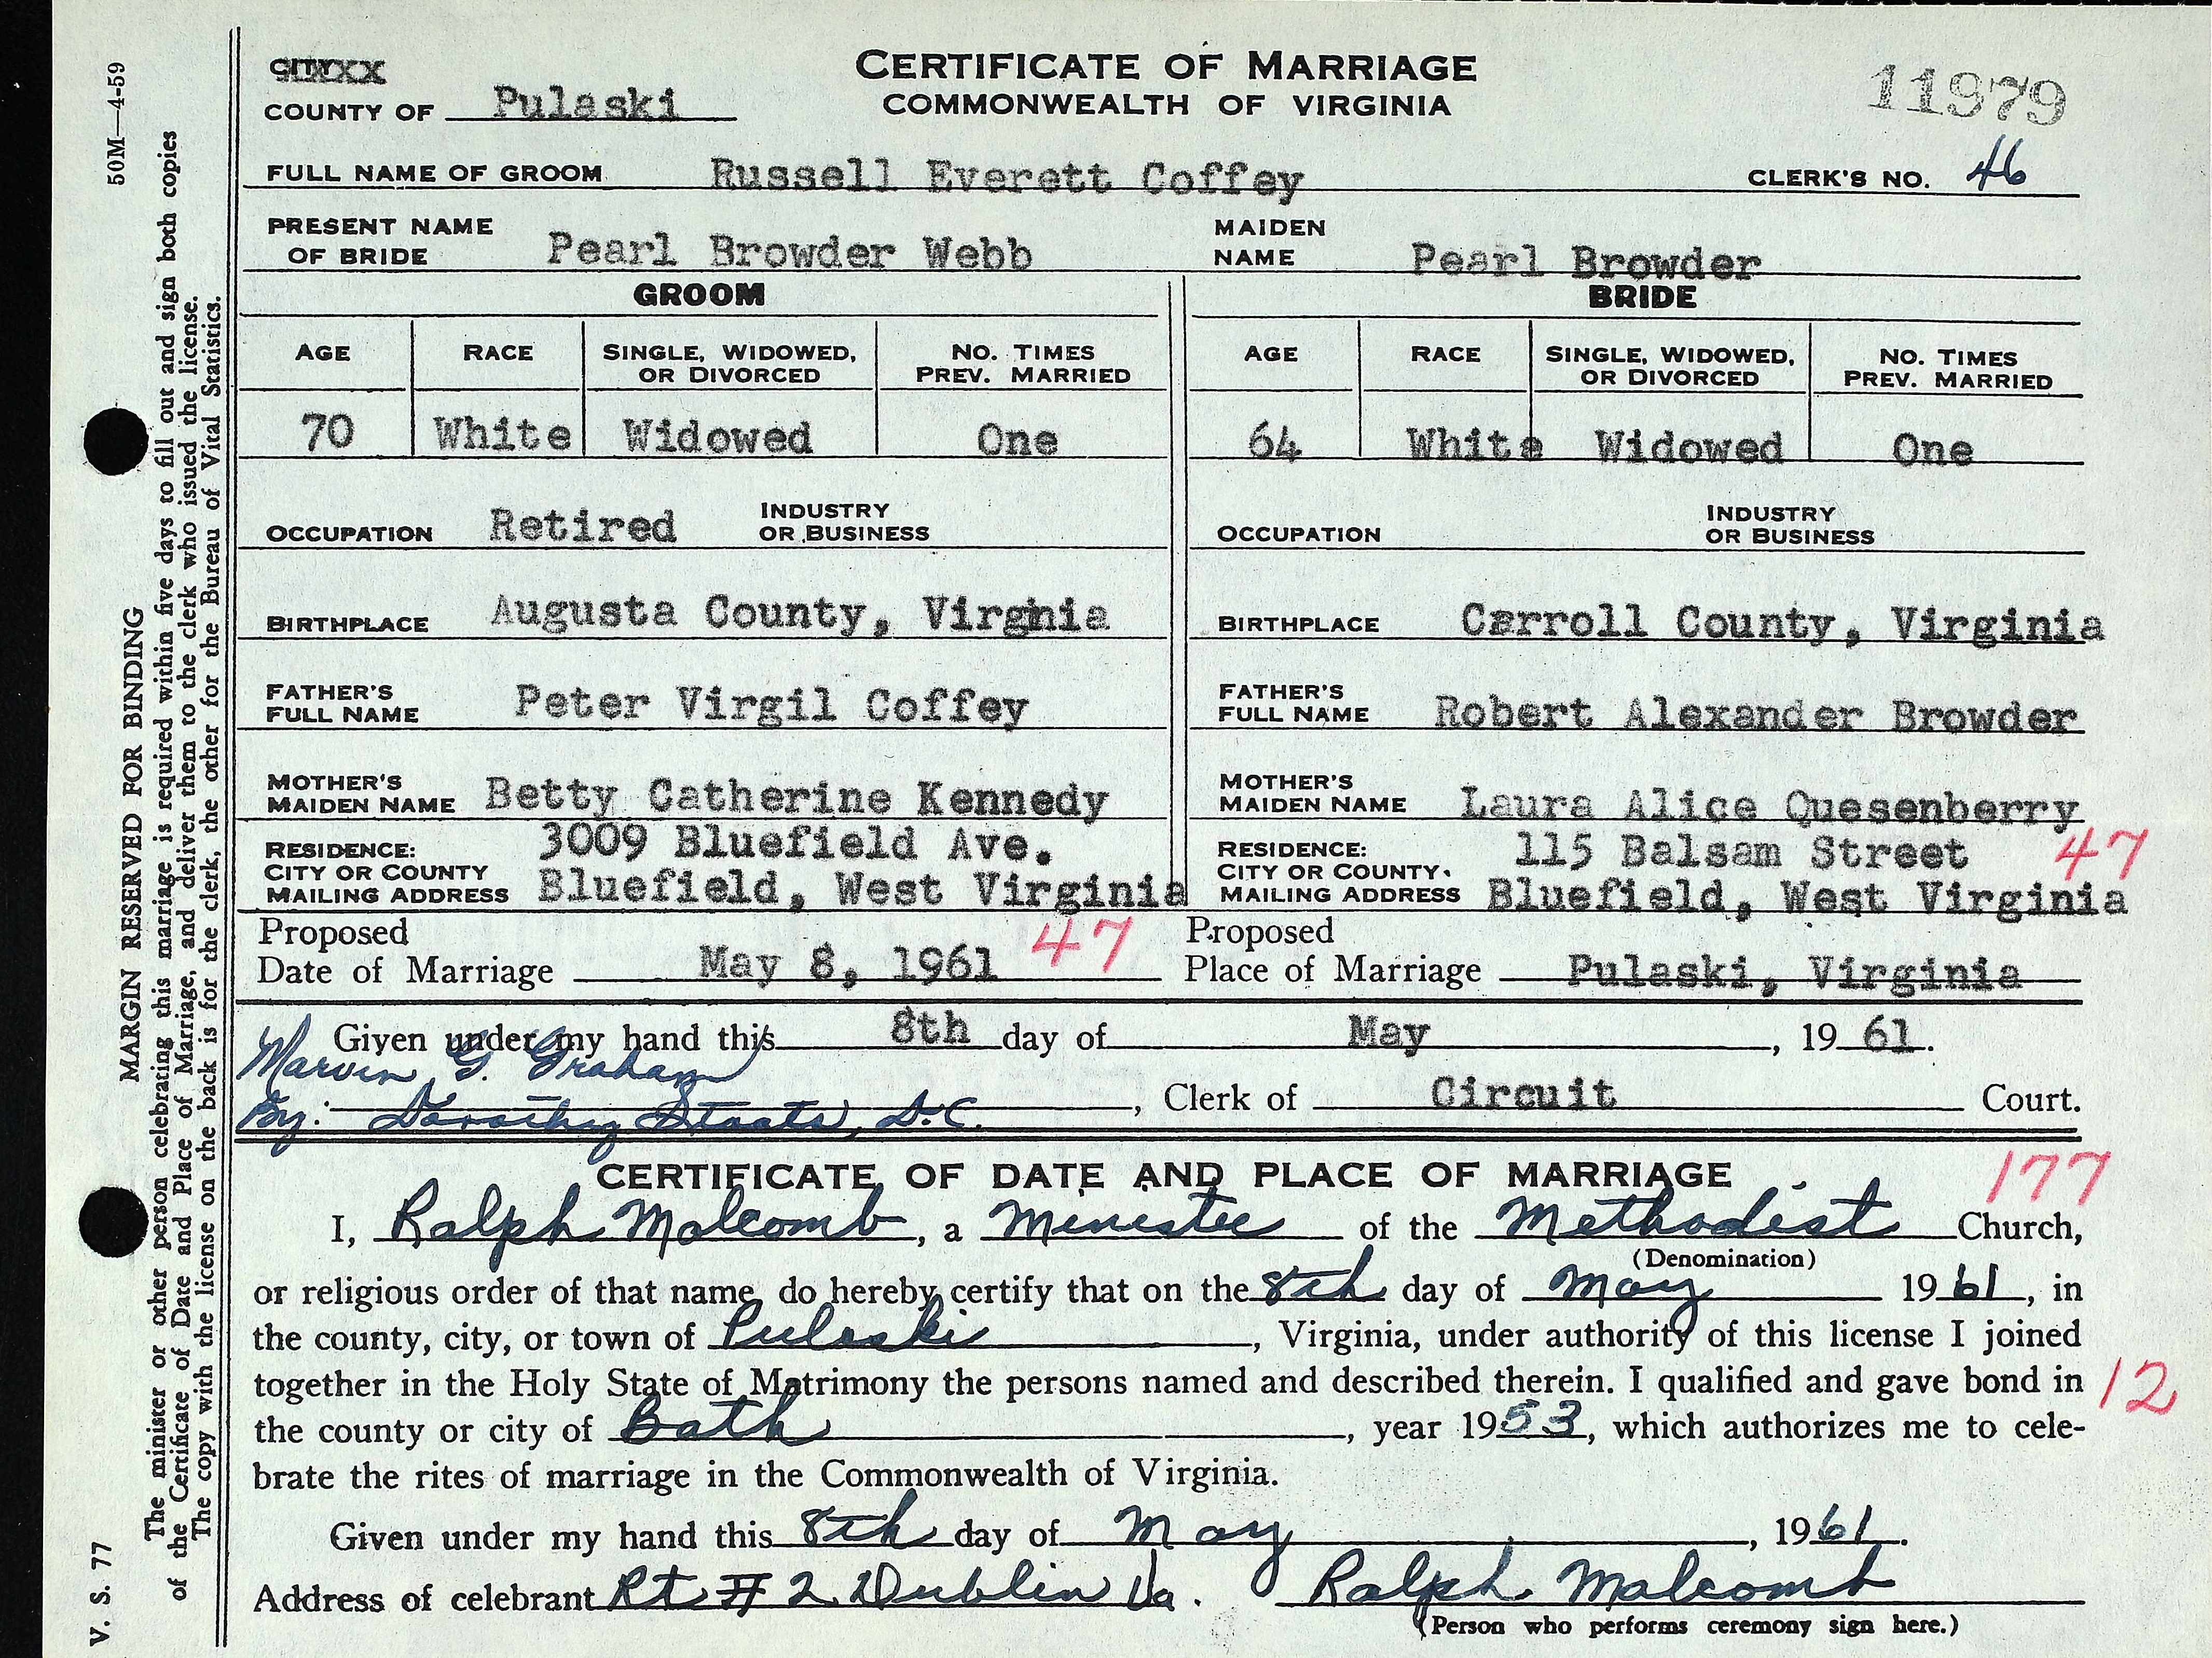 CITYXX
CERTIFICATE OF MARRIAGE
COUNTY OF Pulaski
COMMONWEALTH OF VIRGINIA
11979
FULL NAME OF GROOM Russell Everett Coffey CLERK'S NO. 46
PRESENT NAME OF BRIDE Pearl Browder Webb MAIDEN NAME Pearl Browder
GROOM BRIDE
AGE RACE SINGLE, WIDOWED, OR DIVORCED NO. TIMES PREV. MARRIED AGE RACE SINGLE, WIDOWED, OR DIVORCED NO. TIMES PREV. MARRIED
70 White Widowed One 64 White Widowed One
OCCUPATION Retired INDUSTRY OR BUSINESS OCCUPATION INDUSTRY OR BUSINESS
BIRTHPLACE Augusta County, Virginia BIRTHPLACE Carroll County, Virginia
FATHER'S FULL NAME Peter Virgil Coffey FATHER'S FULL NAME Robert Alexander Browder
MOTHER'S MAIDEN NAME Betty Catherine Kennedy MOTHER'S MAIDEN NAME Laura Alice Quesenberry
RESIDENCE: 3009 Bluefield Ave. RESIDENCE: 115 Balsam Street 47
CITY OR COUNTY CITY OR COUNTY
MAILING ADDRESS Bluefield, West Virginia MAILING ADDRESS Bluefield, West Virginia
Proposed Date of Marriage May 8, 1961 47 Proposed Place of Marriage Pulaski, Virginia
Given under my hand this 8th day of May, 19 61.
Marvin G. Graham
By: Dorothy Staats, D.C., Clerk of Circuit Court.
CERTIFICATE OF DATE AND PLACE OF MARRIAGE 177
I, Ralph Malcomb, a Minister of the Methodist Church,
(Denomination)
or religious order of that name, do hereby certify that on the 8th day of May 19 61, in
the county, city, or town of Pulaski, Virginia, under authority of this license I joined
together in the Holy State of Matrimony the persons named and described therein. I qualified and gave bond in 12
the county or city of Bath, year 1953, which authorizes me to cele-
brate the rites of marriage in the Commonwealth of Virginia.
Given under my hand this 8th day of May, 1961.
Address of celebrant Rt # 2 Dublin Va. Ralph Malcomb
(Person who performs ceremony sign here.)
V. S. 77 MARGIN RESERVED FOR BINDING 50M—4-59
The minister or other person celebrating this marriage is required within five days to fill out and sign both copies
of the Certificate of Date and Place of Marriage, and deliver them to the clerk who issued the license.
The copy with the license on the back is for the clerk, the other for the Bureau of Vital Statistics.